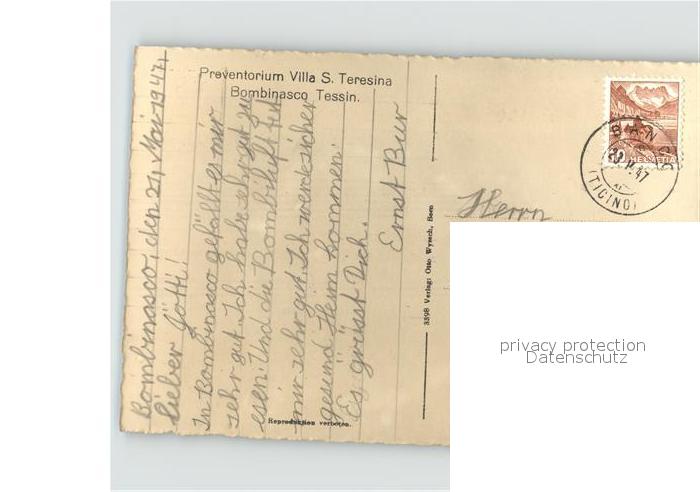 Preventorium Villa S. Teresina
Bombinasco Tessin.
Bombinasco, den 24. Mai 1947
Lieber Götti!
In Bombinasco gefällt es mir
sehr gut. Ich habe sehr gut zu
essen. Und die Bombiluft tut
mir sehr gut. Ich werde sicher
gesund Heim kommen.
Es grüsst Dich.
Ernst Bur
Reproduktion verboten.
3398 Verlag: Otto Wyrsch, Bern
HELVETIA
20
BANCO
(TICINO)
47
Herrn
privacy protection
Datenschutz